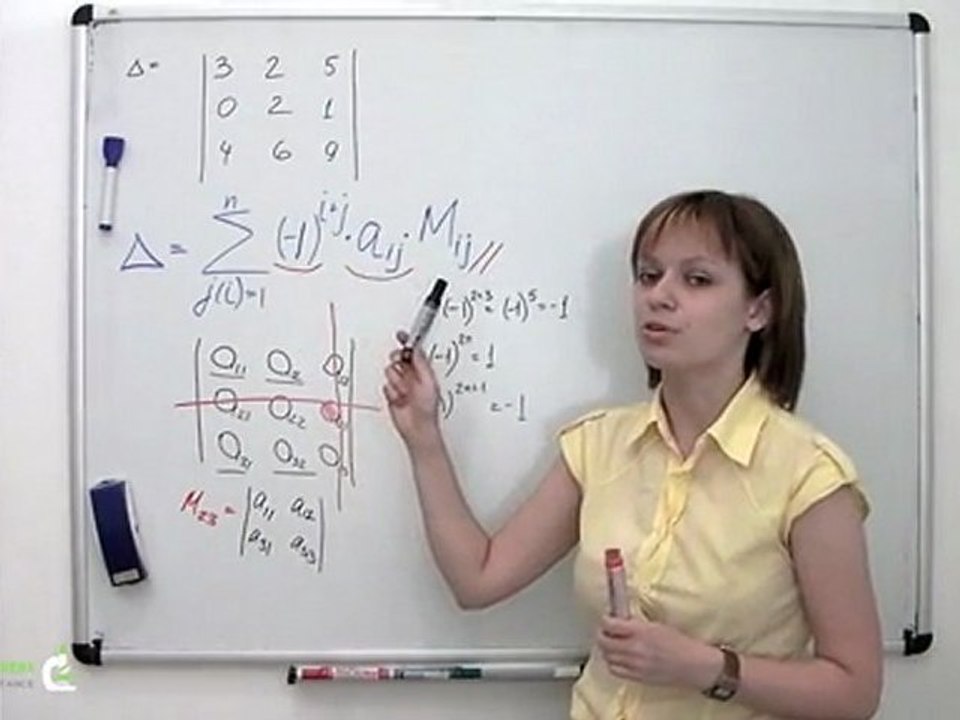 Δ = | 3 2 5 |
| 0 2 1 |
| 4 6 9 |
Δ = ∑ⁿ j(i)=1 (-1)^{i+j} · a_{ij} · M_{ij} //
(-1)^{2+3} = (-1)^5 = -1
(-1)^{2n} = 1
)^{2n+1} = -1
a11 a12
a21 a22
a31 a32
M23 = | a11 a12 |
| a31 a33 |